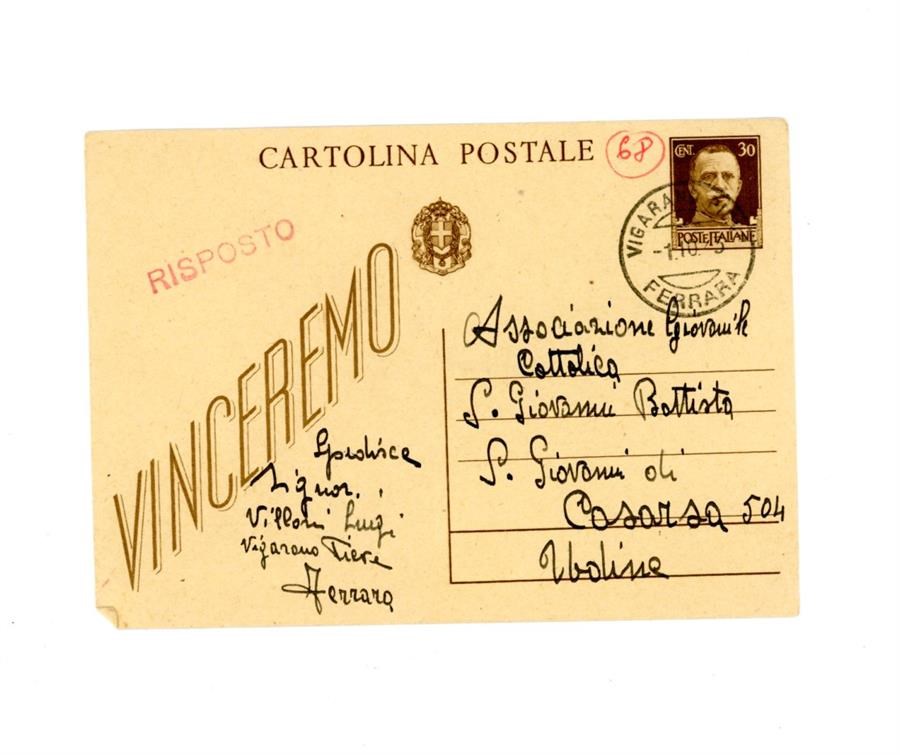 CARTOLINA POSTALE
68
CENT. 30
POSTE ITALIANE
VIGARA
-1.10.
FERRARA
RISPOSTO
VINCEREMO
Associazione Giovanile
Cattolica
S. Giovanni Battista
S. Giovanni di
Casarsa 504
Udine
Spedisce
Signor.
Villani Luigi
Vigarano Pieve
Ferrara